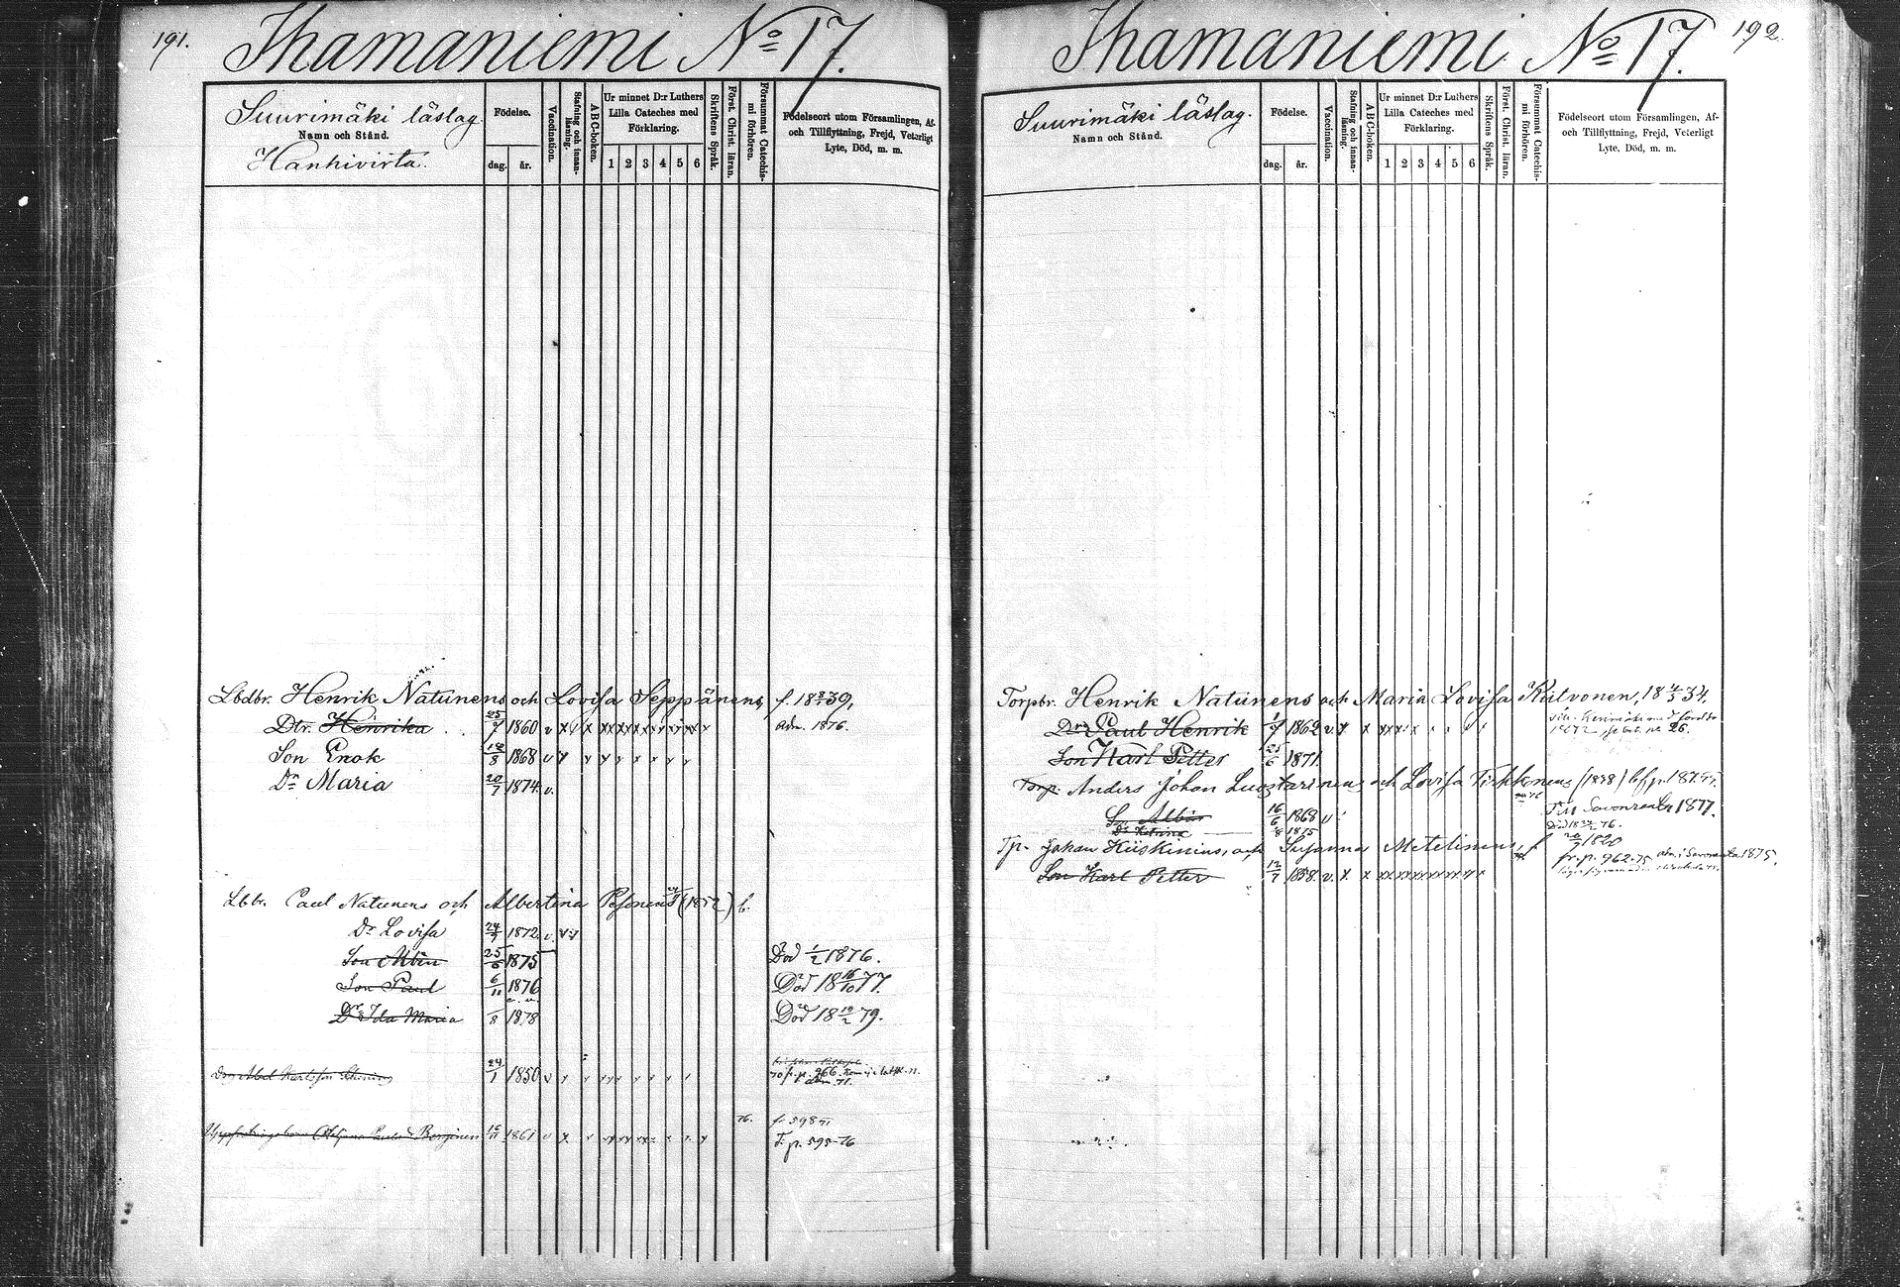 191.
Ihamaniemi No 17.
Suurimäki läslag.
Namn och Stånd.
Hanhivirta.
Födelse.
dag. år.
Vaccination.
Stafning och innanläsning.
ABC-boken.
Ur minnet D:r Luthers
Lilla Cateches med
Förklaring.
1 2 3 4 5 6
Skriftens Språk.
Först. Christ. läran.
Försummat Catechismi förhören.
Födelseort utom Församlingen, Af-
och Tillflyttning, Frejd, Veterligt
Lyte, Död, m. m.
Lbdbr. Henrik Natunens och Lovisa Seppänens, f. 18 39,
Dtr. Henrika 25/7 1860 v adm. 1876.
Son Enok 1868 v
Dr Maria 20/7 1874 v.
Lbbr. Paul Natunens och Albertina Pesonens (1852) b.
Dr Lovisa 24/7 1872 v.
Son Albin 25/6 1875 Död 1/2 1876.
Son Paul 6/11 1876 Död 18 16/10 77.
Dr Ida Maria /8 1878 Död 18 /2 79.
24/1 1850 v
p. 266
1861 v 76. f. 598
T. p. 595-76
192.
Ihamaniemi No 17.
Suurimäki läslag.
Namn och Stånd.
Födelse.
dag. år.
Vaccination.
Stafning och innanläsning.
ABC-boken.
Ur minnet D:r Luthers
Lilla Cateches med
Förklaring.
1 2 3 4 5 6
Skriftens Språk.
Först. Christ. läran.
Försummat Catechismi förhören.
Födelseort utom Församlingen, Af-
och Tillflyttning, Frejd, Veterligt
Lyte, Död, m. m.
Torpbr. Henrik Natunens och Maria Lovisa Kulvonen, 18 4/5 34,
Paul Henrik 1/7 1862 v.
Son Karl Petter 25/6 1871
Torp. Anders Johan Luostarinens och Lovisa Tiskonens (1838)
Till Savonranta 1877.
Son Albin 16/6 1868 v
Dr Katrina 1875
Tp. Johan Kiiskinens, och Susanna Metelinens, f. 20/7 1820
fr. p. 962-75 1875,
Son Karl Petter 12/7 1858. v.